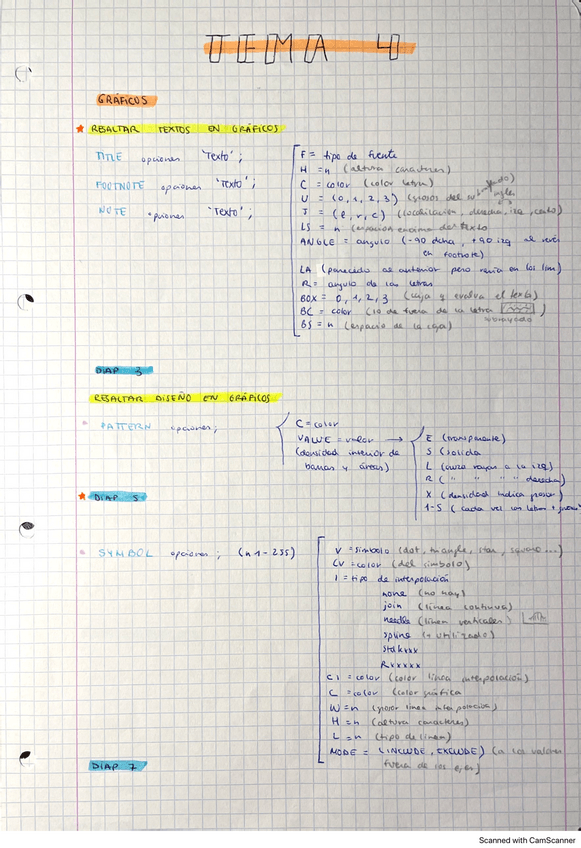 TEMA 4
GRÁFICOS
★ RESALTAR TEXTOS EN GRÁFICOS
TITLE opciones 'Texto';
FOOTNOTE opciones 'Texto';
NOTE opciones 'Texto';
F = tipo de fuente
H = n (altura caracteres)
C = color (color letra)
U = (0, 1, 2, 3) (grosor del
J = (l, r, c) (localización, derecha, izq, cento)
LS = n (espacion encima del texto
ANGLE = angulo (-90 dcha, +90 izq al revés
en footnote)
LA (parecido al anterior pero varia en los
R = angulo de las letras
BOX = 0, 1, 2, 3 (caja y envolva el texto)
BC = color (lo de fuera de la letra )
subrayado
BS = n (espacio de la caja)
DIAP 3
RESALTAR DISEÑO EN GRÁFICOS
PATTERN opciones;
C = color
VALUE = valor →
(densidad interior de
barras y áreas)
E (transparente)
S (solida
L (cruza rayas a la izq)
R ( " " " " derecha)
X (densidad indica grosor)
1-5 (cada vez con letras +
★ DIAP 5
SYMBOL opciones; (n 1-255)
V = simbolo (dot, triangle, star, square ...)
CV = color (del simbolo)
I = tipo de interpolación
none (no hay)
join (línea continua)
needle (línea verticales)
spline (+ utilizado)
stdkxxx
Rxxxxx
CI = color (color línea interpolación)
C = color (color gráfica
W = n (grosor linea interpolación)
H = n (altura caracteres)
L = n (tipo de linea)
MODE = (INCLUDE, EXCLUDE) (a los valores
fuera de los ejes)
DIAP 7
Scanned with CamScanner